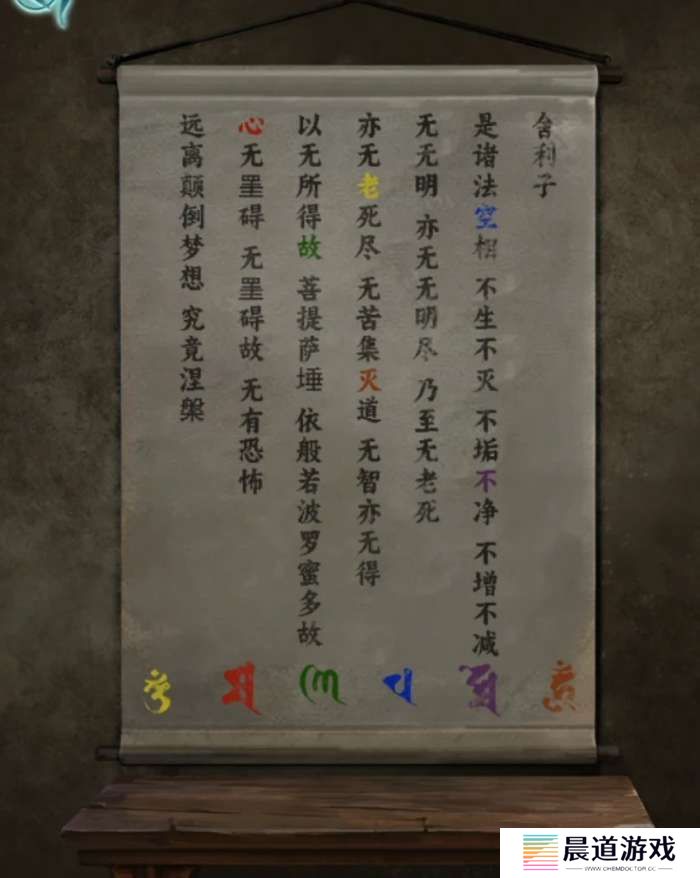 舍利子
是诸法空相 不生不灭 不垢不净 不增不减
无无明 亦无无明尽 乃至无老死
亦无老死尽 无苦集灭道 无智亦无得
以无所得故 菩提萨埵 依般若波罗蜜多故
心无罣碍 无罣碍故 无有恐怖
远离颠倒梦想 究竟涅槃
晨道游戏